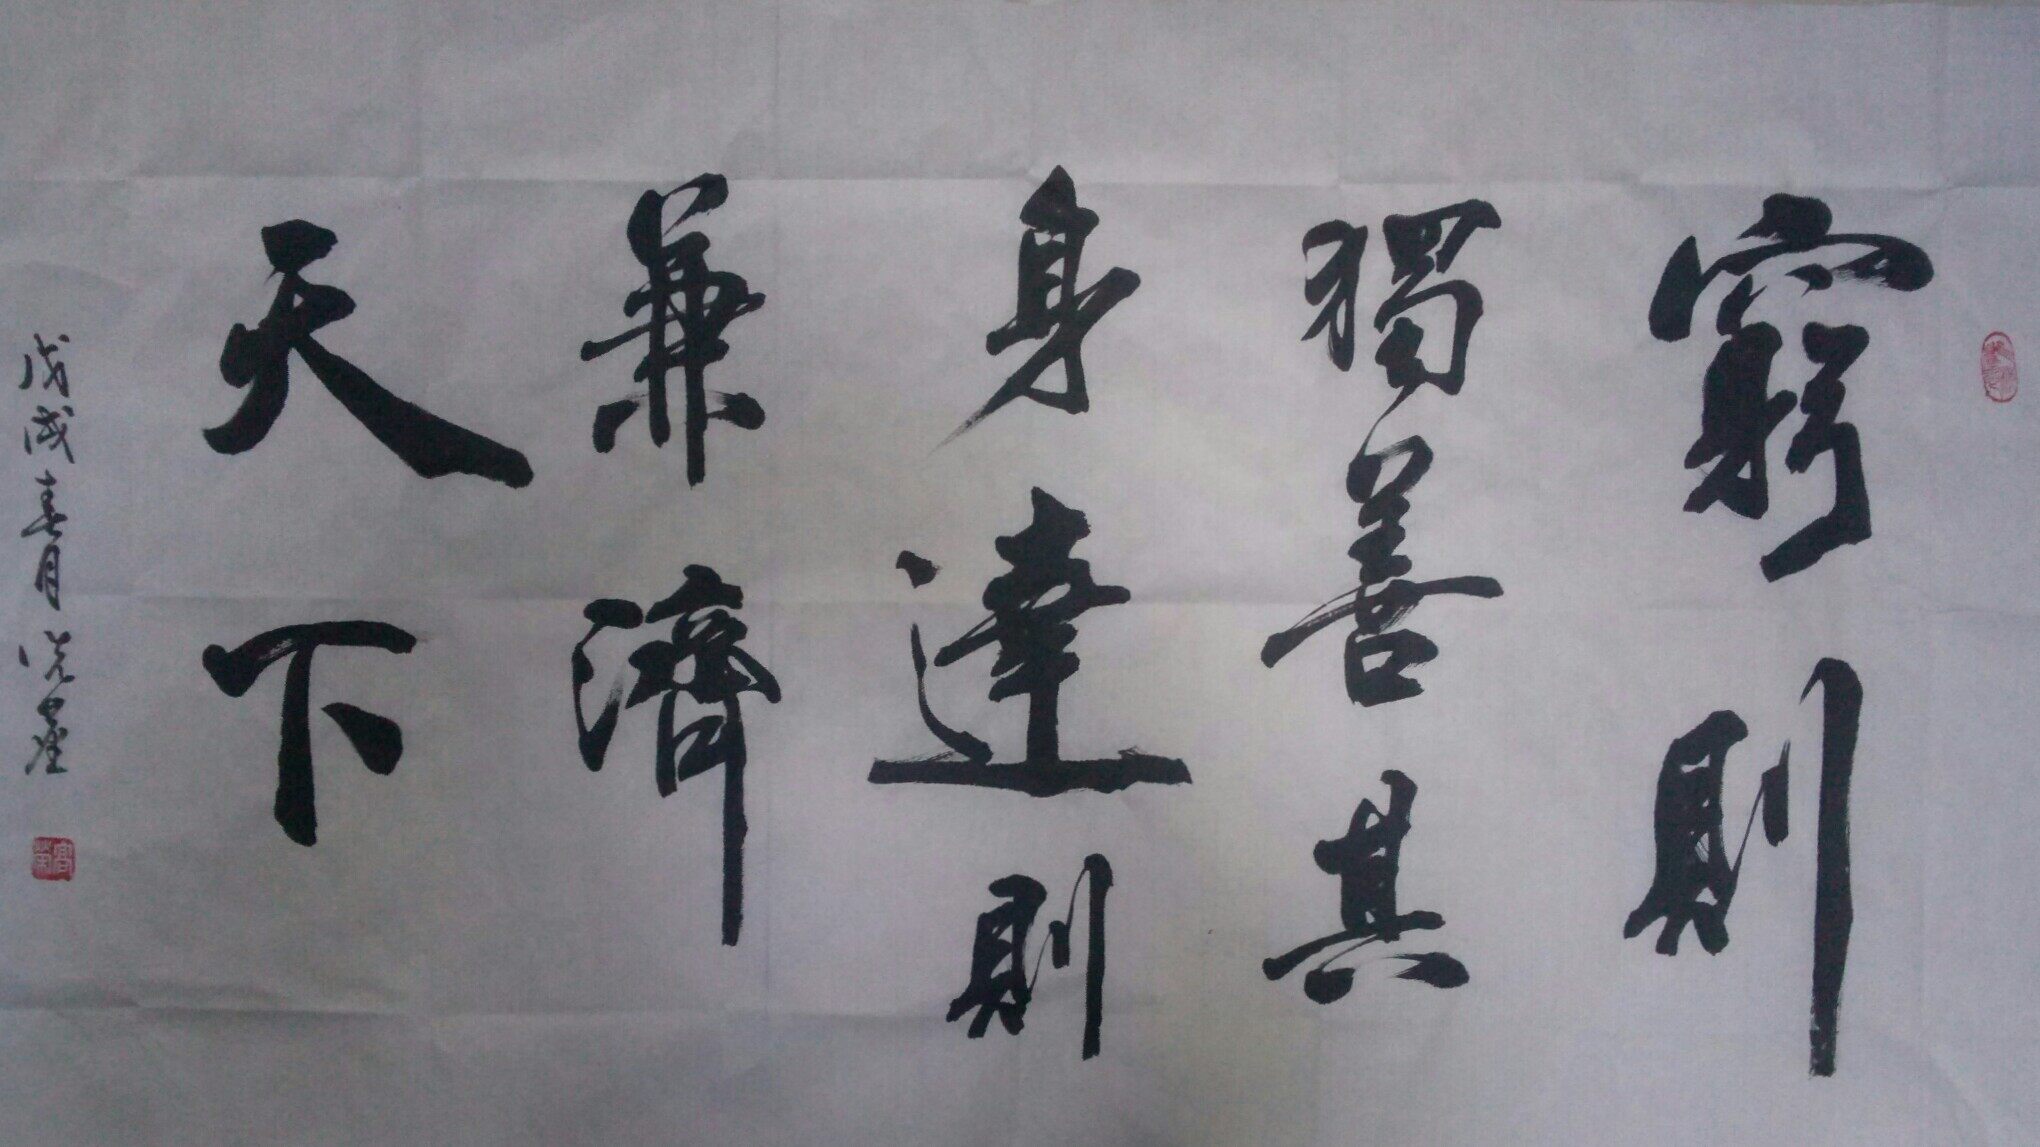 窮則
獨善其
身達則
兼濟
天下
戊戌春月